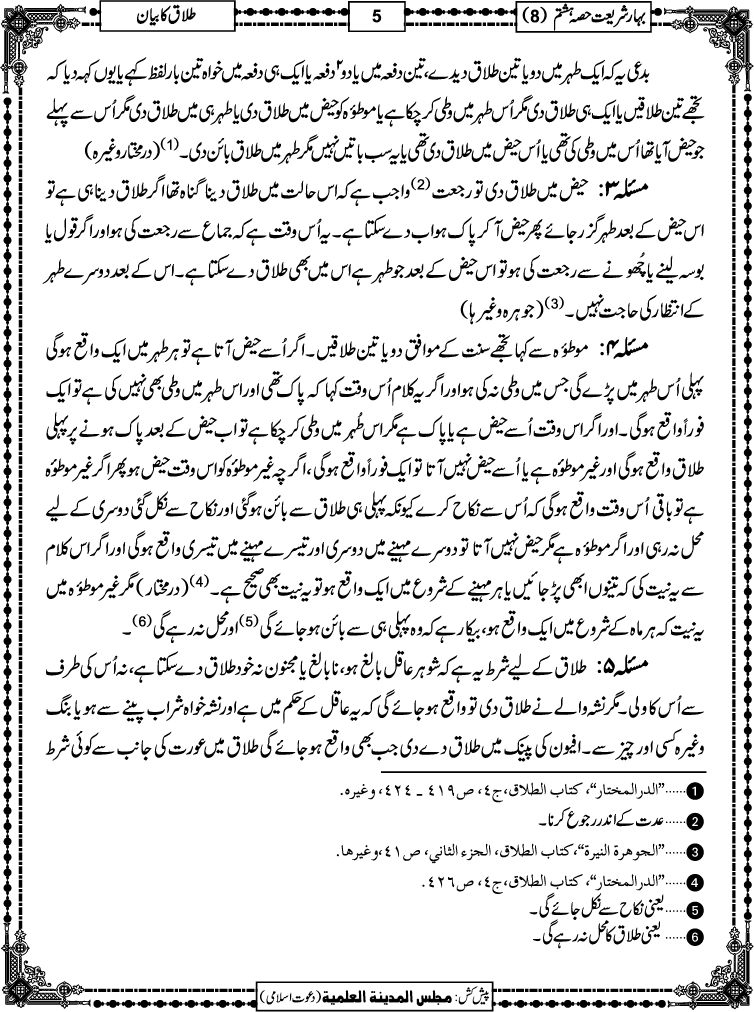 بہار شریعت حصہ ہشتم (8)
5
طلاق کا بیان
بدعی یہ کہ ایک طہر میں دو یا تین طلاق دیدے، تین دفعہ میں یا دو۲ دفعہ یا ایک ہی دفعہ میں خواہ تین بار لفظ کہے یا یوں کہہ دیا کہ
تجھے تین طلاقیں یا ایک ہی طلاق دی مگر اُس طہر میں وطی کر چکا ہے یا موطؤہ کو حیض میں طلاق دی یا طہر ہی میں طلاق دی مگر اُس سے پہلے
جو حیض آیا تھا اُس میں وطی کی تھی یا اُس حیض میں طلاق دی تھی یا یہ سب باتیں نہیں مگر طہر میں طلاق بائن دی۔(1) (درمختار وغیرہ)
مسئلہ ۳: حیض میں طلاق دی تو رجعت(2) واجب ہے کہ اس حالت میں طلاق دینا گناہ تھا اگر طلاق دینا ہی ہے تو
اس حیض کے بعد طہر گزر جائے پھر حیض آ کر پاک ہو اب دے سکتا ہے۔ یہ اُس وقت ہے کہ جماع سے رجعت کی ہو اور اگر قول یا
بوسہ لینے یا چُھونے سے رجعت کی ہو تو اس حیض کے بعد جو طہر ہے اس میں بھی طلاق دے سکتا ہے۔ اس کے بعد دوسرے طہر
کے انتظار کی حاجت نہیں۔(3) (جوہرہ وغیرہا)
مسئلہ ۴: موطؤہ سے کہا تجھے سنت کے موافق دو یا تین طلاقیں۔ اگر اُسے حیض آتا ہے تو ہر طہر میں ایک واقع ہوگی
پہلی اُس طہر میں پڑے گی جس میں وطی نہ کی ہو اور اگر یہ کلام اُس وقت کہا کہ پاک تھی اور اس طہر میں وطی بھی نہیں کی ہے تو ایک
فوراً واقع ہوگی۔ اور اگر اس وقت اُسے حیض ہے یا پاک ہے مگر اس طُہر میں وطی کر چکا ہے تو اب حیض کے بعد پاک ہونے پر پہلی
طلاق واقع ہوگی اور غیر موطؤہ ہے یا اُسے حیض نہیں آتا تو ایک فوراً واقع ہوگی، اگرچہ غیر موطؤہ کو اس وقت حیض ہو پھر اگر غیر موطؤہ
ہے تو باقی اُس وقت واقع ہوگی کہ اُس سے نکاح کرے کیونکہ پہلی ہی طلاق سے بائن ہوگئی اور نکاح سے نکل گئی دوسری کے لیے
محل نہ رہی اور اگر موطؤہ ہے مگر حیض نہیں آتا تو دوسرے مہینے میں دوسری اور تیسرے مہینے میں تیسری واقع ہوگی اور اگر اس کلام
سے یہ نیت کی کہ تینوں ابھی پڑ جائیں یا ہر مہینے کے شروع میں ایک واقع ہو تو یہ نیت بھی صحیح ہے۔(4) (درمختار) مگر غیر موطؤہ میں
یہ نیت کہ ہر ماہ کے شروع میں ایک واقع ہو، بیکار ہے کہ وہ پہلی ہی سے بائن ہو جائے گی(5) اور محل نہ رہے گی(6)۔
مسئلہ ۵: طلاق کے لیے شرط یہ ہے کہ شوہر عاقل بالغ ہو، نابالغ یا مجنون نہ خود طلاق دے سکتا ہے، نہ اُس کی طرف
سے اُس کا ولی۔ مگر نشہ والے نے طلاق دی تو واقع ہو جائے گی کہ یہ عاقل کے حکم میں ہے اور نشہ خواہ شراب پینے سے ہو یا بنگ
وغیرہ کسی اور چیز سے۔ افیون کی پینک میں طلاق دے دی جب بھی واقع ہو جائے گی طلاق میں عورت کی جانب سے کوئی شرط
1......"الدرالمختار"، کتاب الطلاق، ج٤، ص٤١٩ ـ ٤٢٤، وغیرہ.
2......عدت کے اندر رجوع کرنا۔
3......"الجوھرۃ النیرۃ"، کتاب الطلاق، الجزء الثاني، ص٤١، وغیرھا.
4......"الدرالمختار"، کتاب الطلاق، ج٤، ص٤٢٦.
5......یعنی نکاح سے نکل جائے گی۔
6......یعنی طلاق کا محل نہ رہے گی۔
پیش کش: مجلس المدینة العلمیة (دعوت اسلامی)